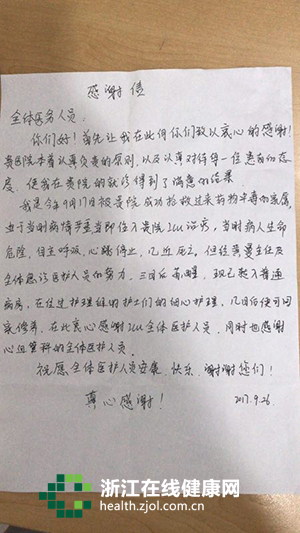 感谢信
全体医务人员：
你们好！首先让我在此向你们致以衷心的感谢！
贵医院本着认真负责的原则，以及认真对待每一位患者的态
度，使我在贵院的就诊得到了满意的结果。
我是今9月11日被贵院成功抢救过来药物中毒的家属，
由于当时病情严重当即住入贵院ICU治疗，当时病人生命
危险，自主呼吸，心跳停止，几近死亡，但经黄主任及
全体急诊医护人员的努力，三日后苏醒，现已转入普通
病房，在经过护理组的护士们的细心护理，几日后便可回
家修养，在此衷心感谢ICU全体医护人员，同时也感谢
心血管科的全体医护人员。
祝愿全体医护人员安康、快乐，谢谢您们！
真心感谢！ 2017.9.26
浙江在线健康网
health.zjol.com.cn